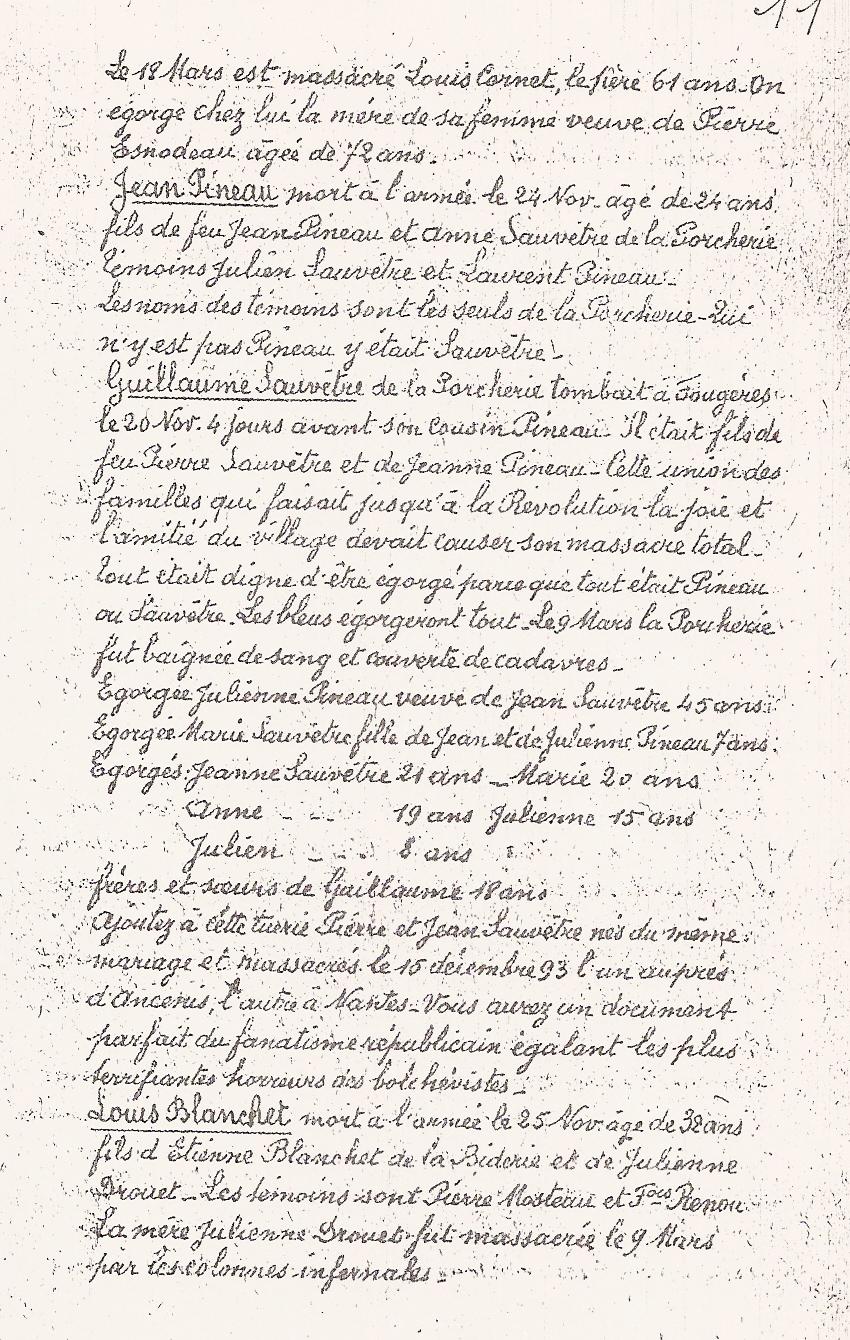 11
Le 18 Mars est massacré Louis Cornet, le père 61 ans - On
égorge chez lui la mére de sa femme veuve de Pierre
Esnodeau âgeé de 72 ans.
Jean Pineau mort à l'armée le 24 Nov. âgé de 24 ans
fils de feu Jean Pineau et Anne Sauvêtre de la Porcherie
témoins Julien Sauvêtre et Laurent Pineau -
Les noms des témoins sont les seuls de la Porcherie - Qui
n'y est pas Pineau y était Sauvêtre! -
Guillaume Sauvêtre de la Porcherie tombait à Fougères
le 20 Nov. 4 jours avant son cousin Pineau - Il était fils de
feu Pierre Sauvêtre et de Jeanne Pineau - Cette union des
familles qui faisait jusqu'à la Revolution la joie et
l'amitié du village devait causer son massacre total -
tout était digne d'être égorgé parce que tout était Pineau
ou Sauvêtre - Les bleus égorgeront tout - Le 9 Mars la Porcherie
fut baignée de sang et couverte de cadavres -
Egorgée Julienne Pineau veuve de Jean Sauvêtre 45 ans.
Egorgée Marie Sauvêtre fille de Jean et de Julienne Pineau 7 ans.
Egorgés: Jeanne Sauvêtre 21 ans - Marie 20 ans
Anne - - - 19 ans Julienne 15 ans
Julien - - - 8 ans
frères et sœurs de Guillaume 18 ans
Ajoutez à cette tuerie Pierre et Jean Sauvêtre nés du même
mariage et massacrés le 15 décembre 93 l'un auprès
d'Ancenis, l'autre à Nantes - Vous aurez un document
parfait du fanatisme républicain égalant les plus
terrifiantes horreurs des bolchévistes -
Louis Blanchet mort à l'armée le 25 Nov. âgé de 38 ans
fils d'Etienne Blanchet de la Biderie et de Julienne
Drouet - Les témoins sont Pierre Mosteau et Fçois Renou
La mère Julienne Drouet fut massacrée le 9 Mars
par les colonnes infernales -